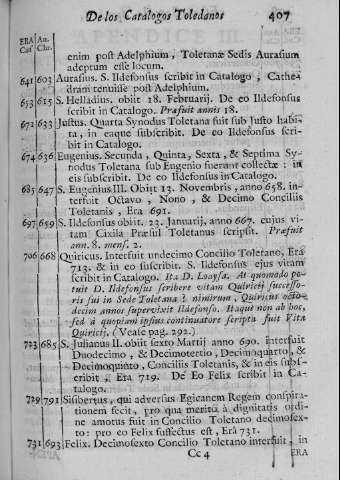 De los Catalogos Toledanos 407
ERA An.
Caſ Chr.
enim poſt Adelphium, Toletanæ Sedis Auraſium
adeptum eſſe locum.
641 603 Auraſius. S. Ildefonſus ſcribit in Catalogo, Cathe-
dram tenuiſſe poſt Adelphium.
653 615 S. Helladius, obiit 18. Februarij. De eo Ildefonſus
ſcribit in Catalogo. Præfuit annis 18.
671 633 Juſtus. Quarta Synodus Toletana fuit ſub Juſto habi-
ta, in eaque ſubſcribit. De eo Ildefonſus ſcri-
bit in Catalogo.
674 636 Eugenius. Secunda, Quinta, Sexta, & Septima Sy-
nodus Toletana ſub Eugenio fuerunt collectæ: in
eis ſubſcribit. De eo Ildefonſus in Catalogo.
685 647 S. Eugenius III. Obiit 13. Novembris, anno 658. in-
terfuit Octavo, Nono, & Decimo Conciliis
Toletanis, Era 691.
697 659 S. Ildefonſus obiit. 23. Januarij, anno 667. cujus vi-
tam Cixila Præſul Toletanus ſcripſit. Præfuit
ann. 8. menſ. 2.
706 668 Quiricus. Interfuit undecimo Concilio Toletano, Era
713. & in eo ſuſcribit. S. Ildefonſus ejus vitam
ſcribit in Catalogo. Ita D. Loayſa. At quomodo po-
tuit D. Ildefonſus ſcribere vitam Quiricij ſucceſſo-
ris ſui in Sede Toletana? nimirum, Quiricus octo-
decim annos ſupervixit Ildefonſo. Itaque non ab hoc,
ſed à quopiam ipſius continuatore ſcripta fuit Vita
Quiricij. (Veaſe pag. 292.)
723 685 S. Julianus II. obiit ſexto Martij anno 690. interfuit
Duodecimo, & Decimotertio, Decimoquarto, &
Decimoquinto, Conciliis Toletanis, & in eis ſubſ-
cribit, Era 719. De Eo Felix ſcribit in Ca-
talogo.
729 791 Siſibertus, qui adverſus Egicanem Regem conſpira-
tionem fecit, pro qua meritò à dignitatis ordi-
ne amotus fuit in Concilio Toletano decimoſex-
to: pro eo Felix ſuffectus eſt, Erà 731.
731 693 Felix. Decimoſexto Concilio Toletano interfuit, in
Cc 4 ERA